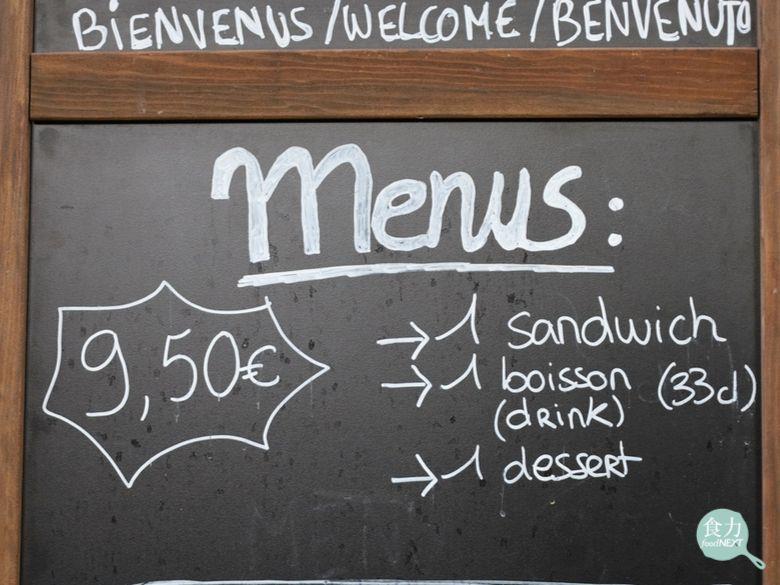 BIENVENUS / WELCOME / BENVENUTO
Menus :
9,50€
→ 1 sandwich
→ 1 boisson (33cl)
(drink)
→ 1 dessert
食力
foodNEXT